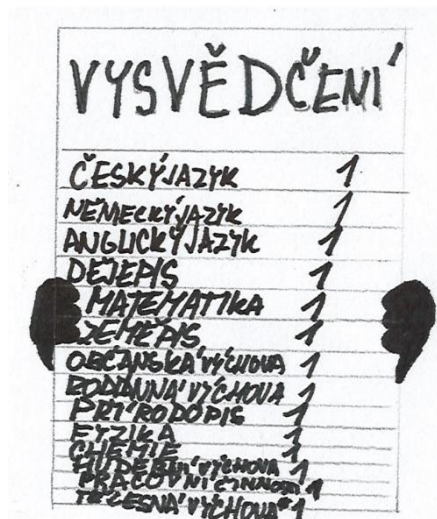 VYSVĚDČENÍ
ČESKÝ JAZYK 1
NĚMECKÝ JAZYK 1
ANGLICKÝ JAZYK 1
DĚJEPIS 1
MATEMATIKA 1
ZEMĚPIS 1
OBČANSKÁ VÝCHOVA 1
RODINNÁ VÝCHOVA 1
PŘÍRODOPIS 1
FYZIKA 1
CHEMIE 1
HUDEBNÍ VÝCHOVA 1
PRACOVNÍ ČINNOSTI 1
TĚLESNÁ VÝCHOVA 1